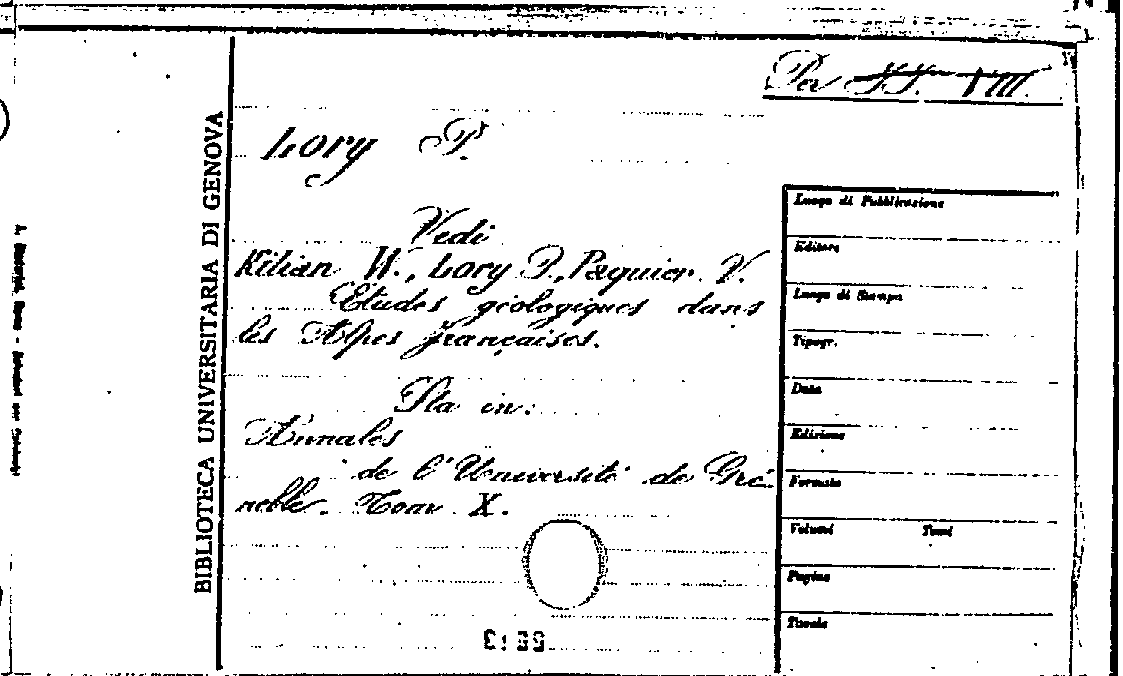 Per
Lory P.
Vedi
Kilian W., Lory P., Paquier V.
Études géologiques dans
les Alpes françaises.
Sta in:
Annales
de l'Université de Gre-
noble. Tom X.
BIBLIOTECA UNIVERSITARIA DI GENOVA
Luogo di Pubblicazione
Editore
Luogo di Stampa
Tipogr.
Data
Edizione
Formato
Volumi Tomi
Pagine
Tavole